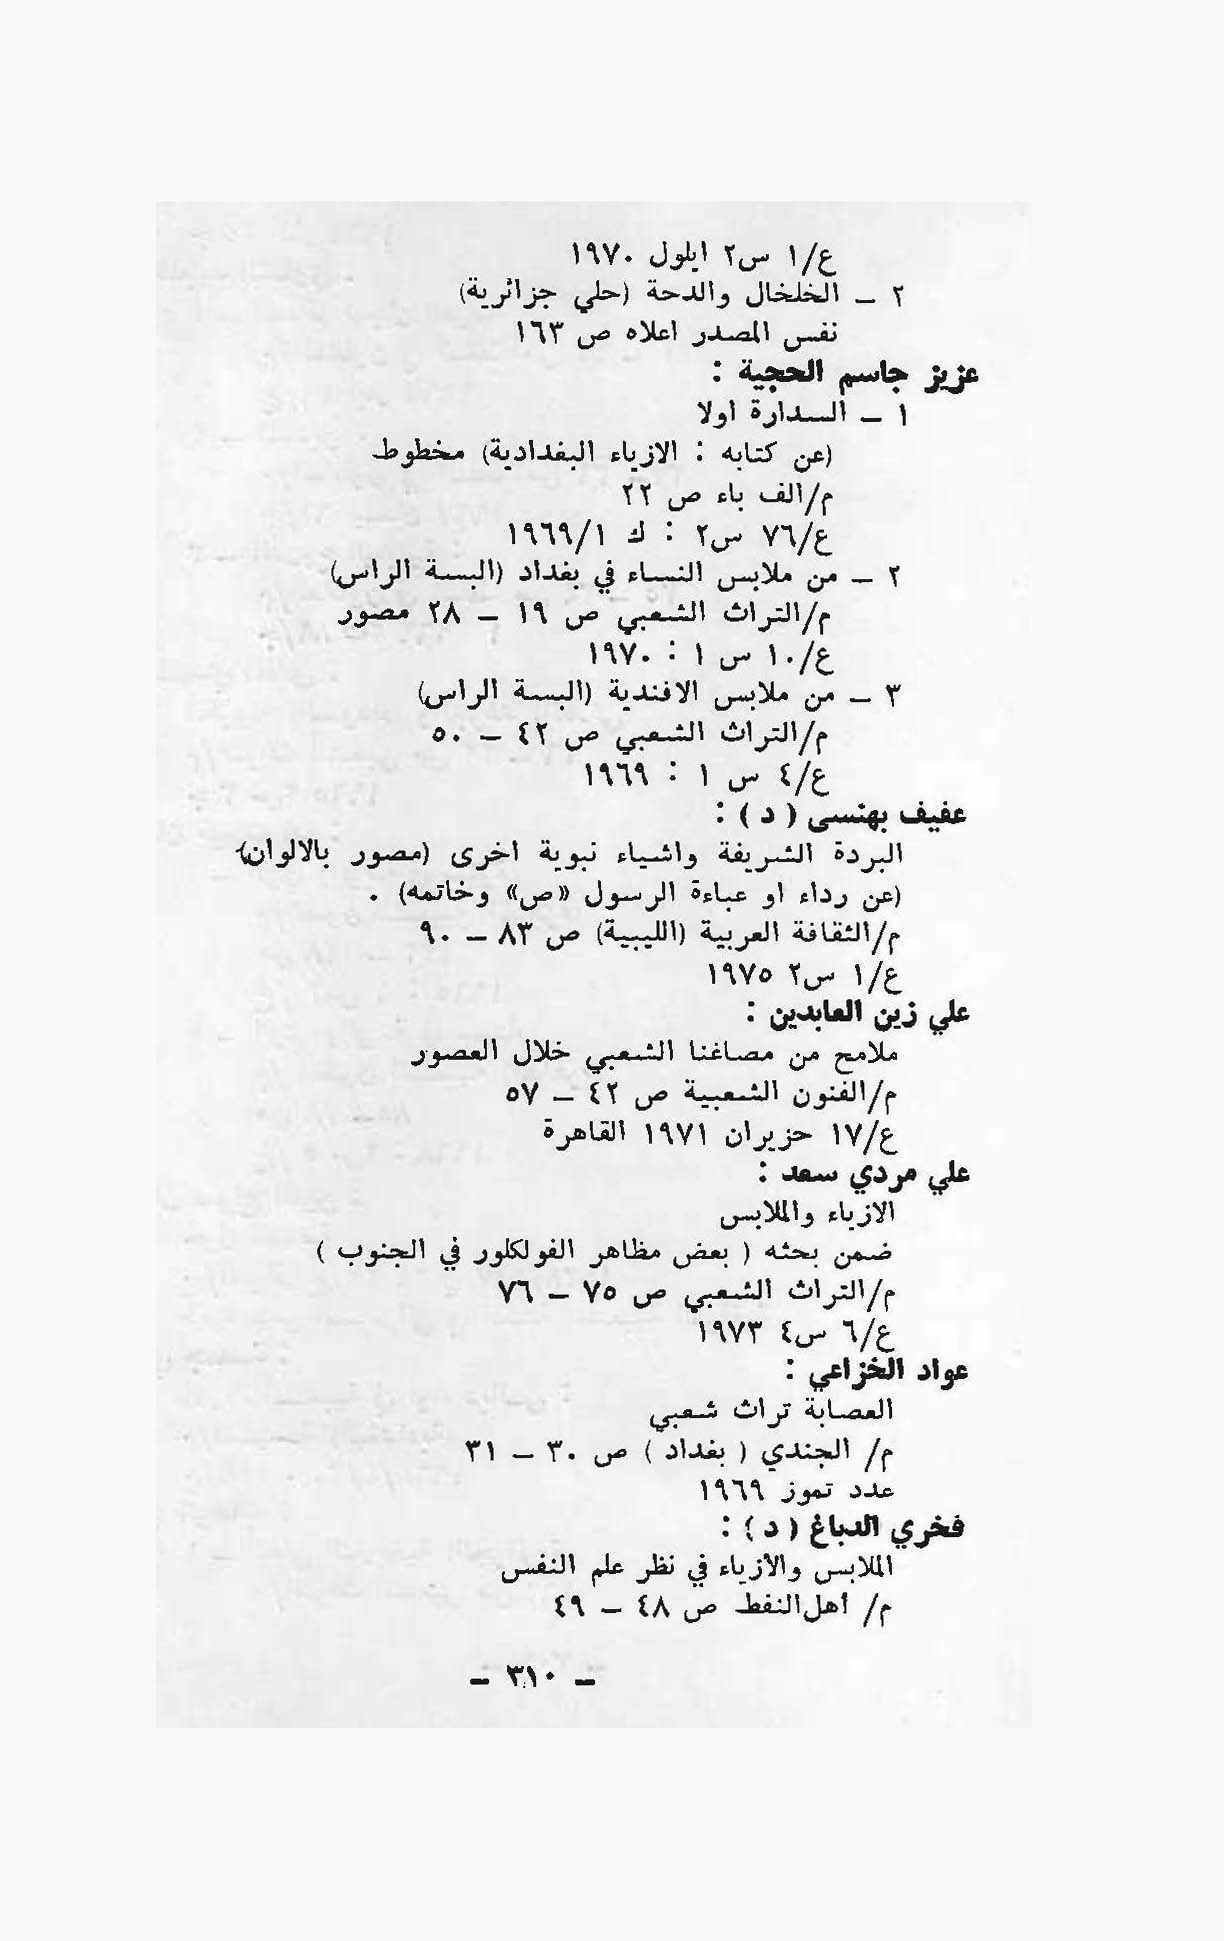 ع/١ س٢ ايلول ١٩٧٠
٢ ـ الخلخال والدحة (حلي جزائرية)
نفس المصدر اعلاه ص ١٦٣
عزيز جاسم الحجية :
١ ـ السدارة اولا
(عن كتابه : الازياء البغدادية) مخطوط
م/الف باء ص ٢٢
ع/٧٦ س٢ : ك ١٩٦٩/١
٢ ـ من ملابس النساء في بغداد (البسة الراس)
م/التراث الشعبي ص ١٩ ـ ٢٨ مصور
ع/١٠ س ١ : ١٩٧٠
٣ ـ من ملابس الافندية (البسة الراس)
م/التراث الشعبي ص ٤٢ ـ ٥٠
ع/٤ س ١ : ١٩٦٩
عفيف بهنسى ( د ) :
البردة الشريفة واشياء نبوية اخرى (مصور بالالوان)
(عن رداء او عباءة الرسول «ص» وخاتمه) .
م/الثقافة العربية (الليبية) ص ٨٣ ـ ٩٠
ع/١ س٢ ١٩٧٥
علي زين العابدين :
ملامح من مصاغنا الشعبي خلال العصور
م/الفنون الشعبية ص ٤٢ ـ ٥٧
ع/١٧ حزيران ١٩٧١ القاهرة
علي مردي سعد :
الازياء والملابس
ضمن بحثه ( بعض مظاهر الفولكلور في الجنوب )
م/التراث الشعبي ص ٧٥ ـ ٧٦
ع/٦ س٤ ١٩٧٣
عواد الخزاعي :
العصابة تراث شعبي
م/ الجندي ( بغداد ) ص ٣٠ ـ ٣١
عدد تموز ١٩٦٩
فخري الدباغ ( د ) :
الملابس والأزياء في نظر علم النفس
م/ أهل النفط ص ٤٨ ـ ٤٩
ـ ٣١٠ ـ